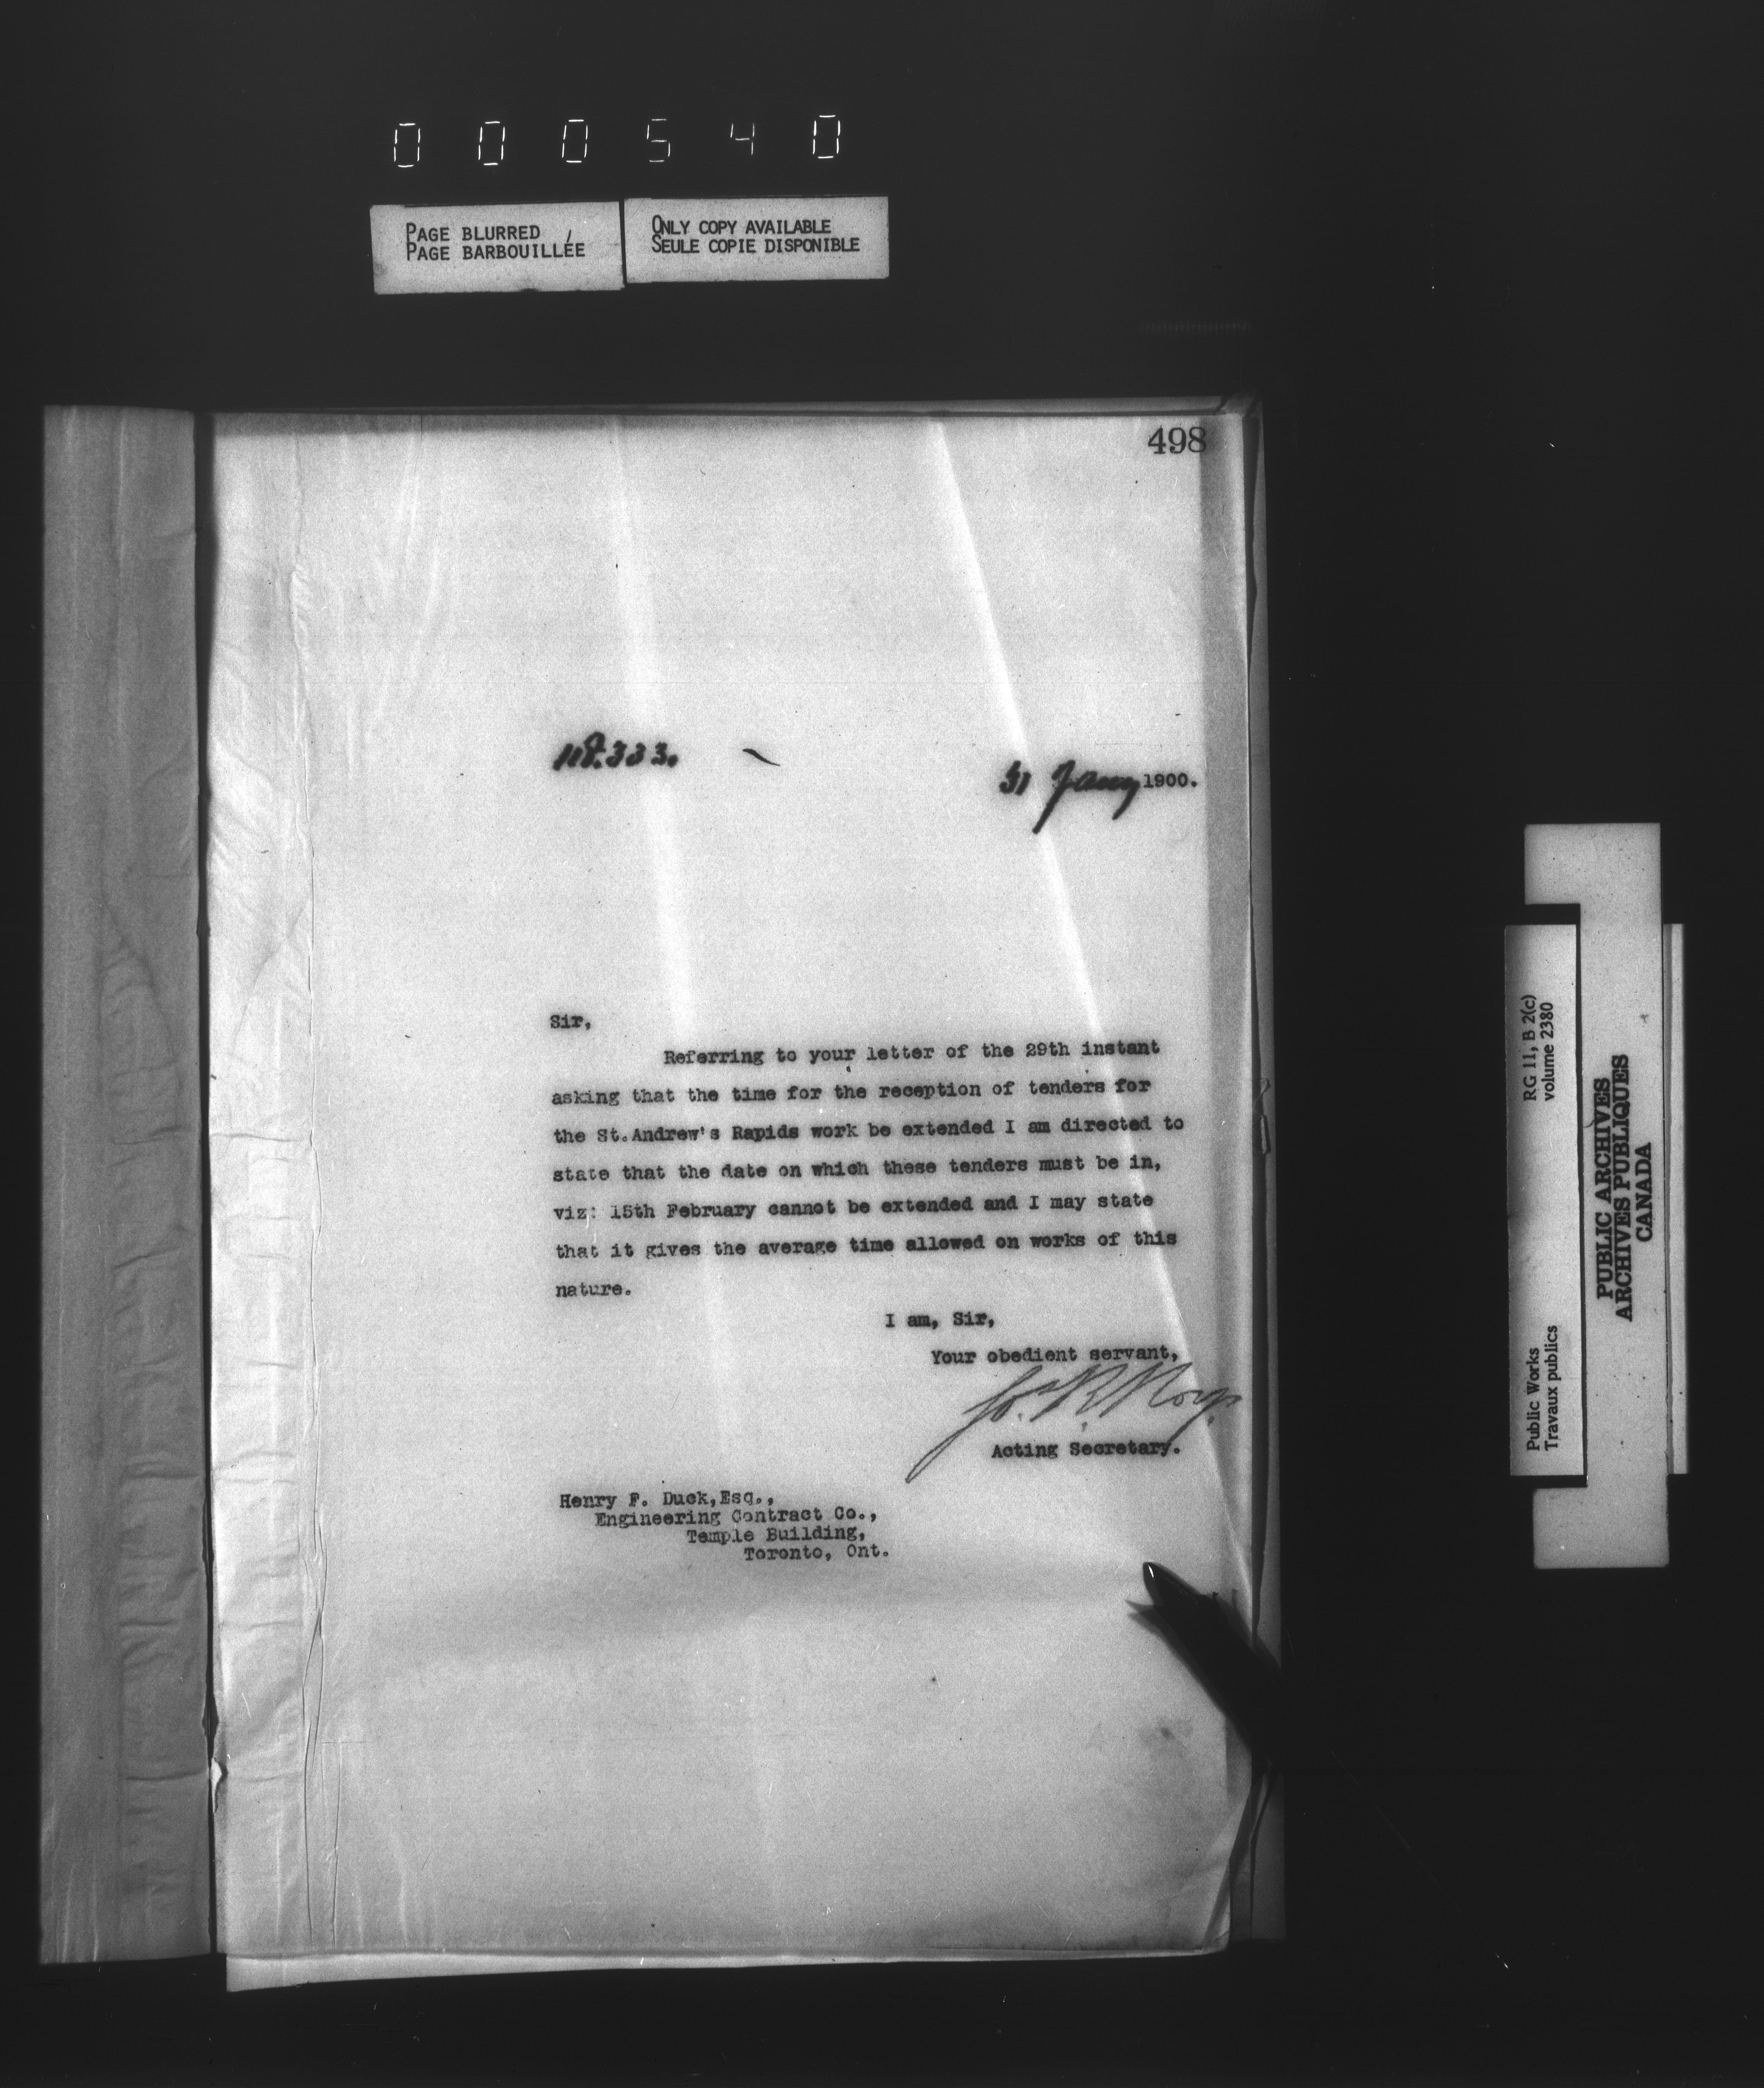 000540
PAGE BLURRED
PAGE BARBOUILLÉE
ONLY COPY AVAILABLE
SEULE COPIE DISPONIBLE
498
118.333.
31 Jany 1900.
Sir,
Referring to your letter of the 29th instant
asking that the time for the reception of tenders for
the St.Andrew's Rapids work be extended I am directed to
state that the date on which these tenders must be in,
viz: 15th February cannot be extended and I may state
that it gives the average time allowed on works of this
nature.
I am, Sir,
Your obedient servant,
Jos. R. Roy.
Acting Secretary.
Henry F. Duck,Esq.,
Engineering Contract Co.,
Temple Building,
Toronto, Ont.
Public Works
Travaux publics
RG 11, B 2(c)
volume 2380
PUBLIC ARCHIVES
ARCHIVES PUBLIQUES
CANADA